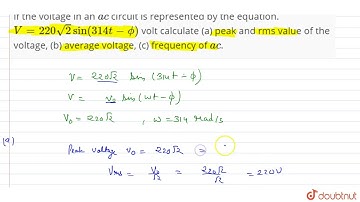 If the voltage in an ac circuit is represented by the equation.
V = 220√2 sin(314t − ϕ) volt calculate (a) peak and rms value of the
voltage, (b) average voltage, (c) frequency of ac.
V = 220√2 sin (314t − ϕ)
V = V₀ sin (ωt − ϕ)
V₀ = 220√2 , ω = 314 rad/s
(a)
Peak voltage V₀ = 220√2 =
Vrms = V₀/√2 = 220√2/√2 = 220V
doubtnut